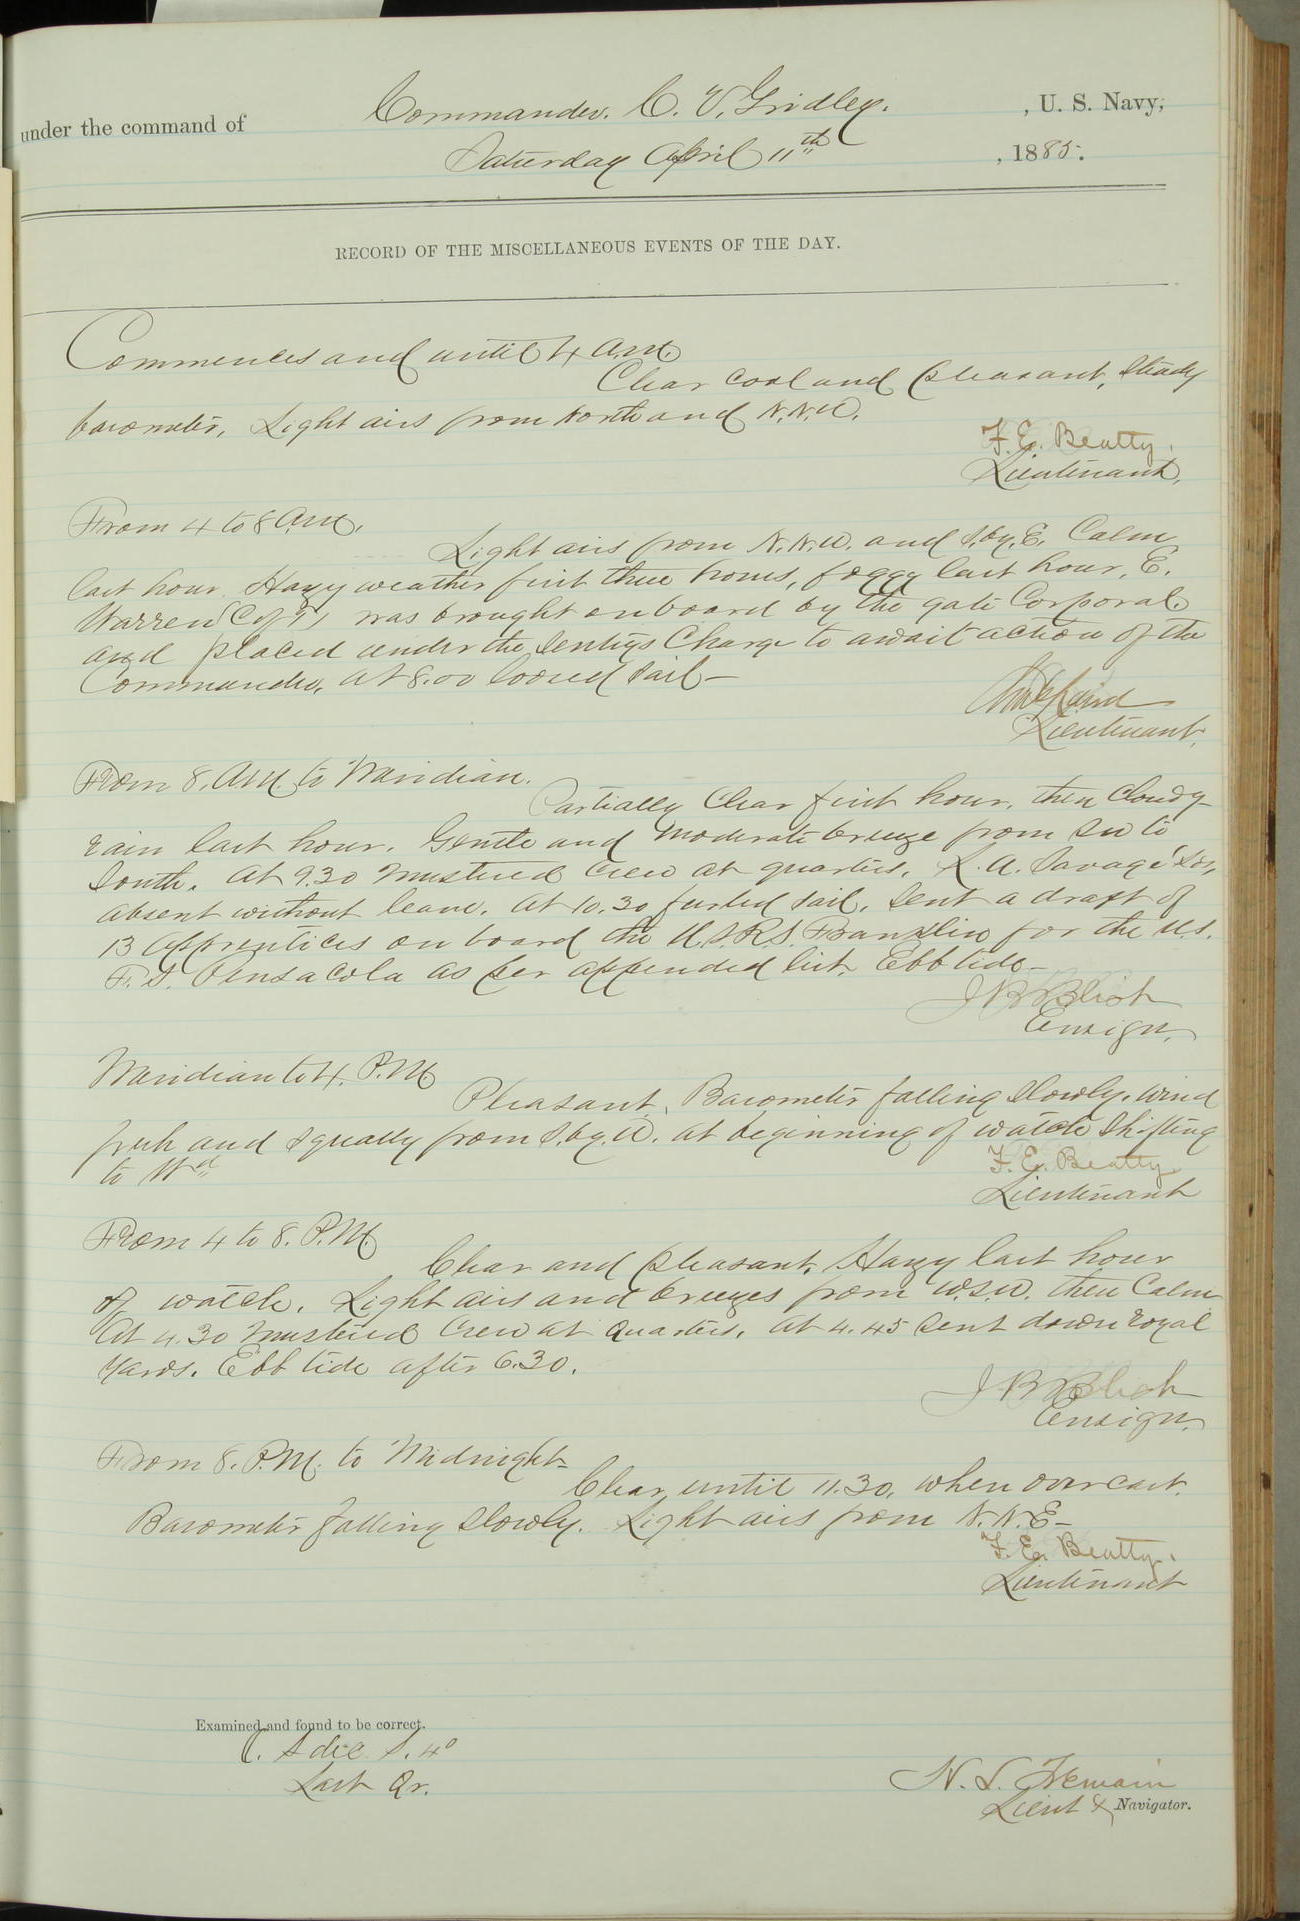 under the command of Commander. C. V. Gridley. , U. S. Navy,
Saturday April 11th , 1885.
RECORD OF THE MISCELLANEOUS EVENTS OF THE DAY.
Commences and until 4 A.M.
Clear cool and pleasant, Steady
barometer, Light airs from North and N.N.W.
F. E. Beatty.
Lieutenant.
From 4 to 8 A.M.
Light airs from N.N.W. and S.by.E. Calm
last hour. Hazy weather first three hours, foggy last hour. E.
Warren was brought on board by the gate Corporal
and placed under the Sentrys Charge to await action of the
Commander. At 8.00 loosed Sail—
Lieutenant.
From 8. A.M. to Meridian.
Partially Clear first hour. then Cloudy
rain last hour. Gentle and moderate breeze from SW to
South. At 9.30 mustered Crew at quarters. L. A. Savage
absent without leave. At 10.30 furled Sail. Sent a draft of
13 Apprentices on board the U.S.R.S. Franklin for the U.S.
F.S. Pensacola as per appended list. Ebb tide—
J B Blish
Ensign.
Meridian to 4. P.M.
Pleasant, Barometer falling Slowly. wind
fresh and Squally from S.by.W. at beginning of watch Shifting
to Wd
F. E. Beatty
Lieutenant
From 4 to 8. P.M.
Clear and pleasant. Hazy last hour
of watch. Light airs and breezes from W.S.W. then Calm
At 4.30 mustered Crew at Quarters. At 4.45 Sent down royal
Yards. Ebb tide after 6.30.
J B Blish
Ensign.
From 8. P.M. to Midnight
Clear until 11.30, when overcast.
Barometer falling Slowly. Light airs from N.N.E—
F. E. Beatty.
Lieutenant
Examined and found to be correct.
S. 4°
Last Qr.
N. S. Tremain
Lieut & Navigator.